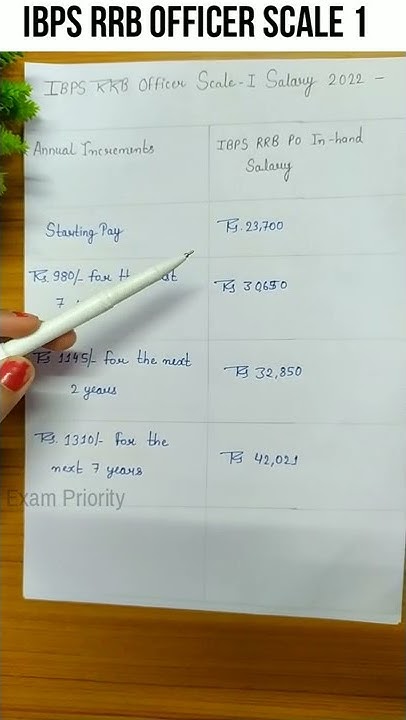 IBPS RRB OFFICER SCALE 1
IBPS RRB Officer Scale-I Salary 2022 -
Annual Increments
IBPS RRB PO In-hand
Salary
Starting Pay
Rs. 23,700
Rs. 980/- for the
7
Rs 30650
Rs 1145/- for the next
2 years
Rs 32,850
Rs. 1310/- for the
next 7 years
Rs 42,021
Exam Priority